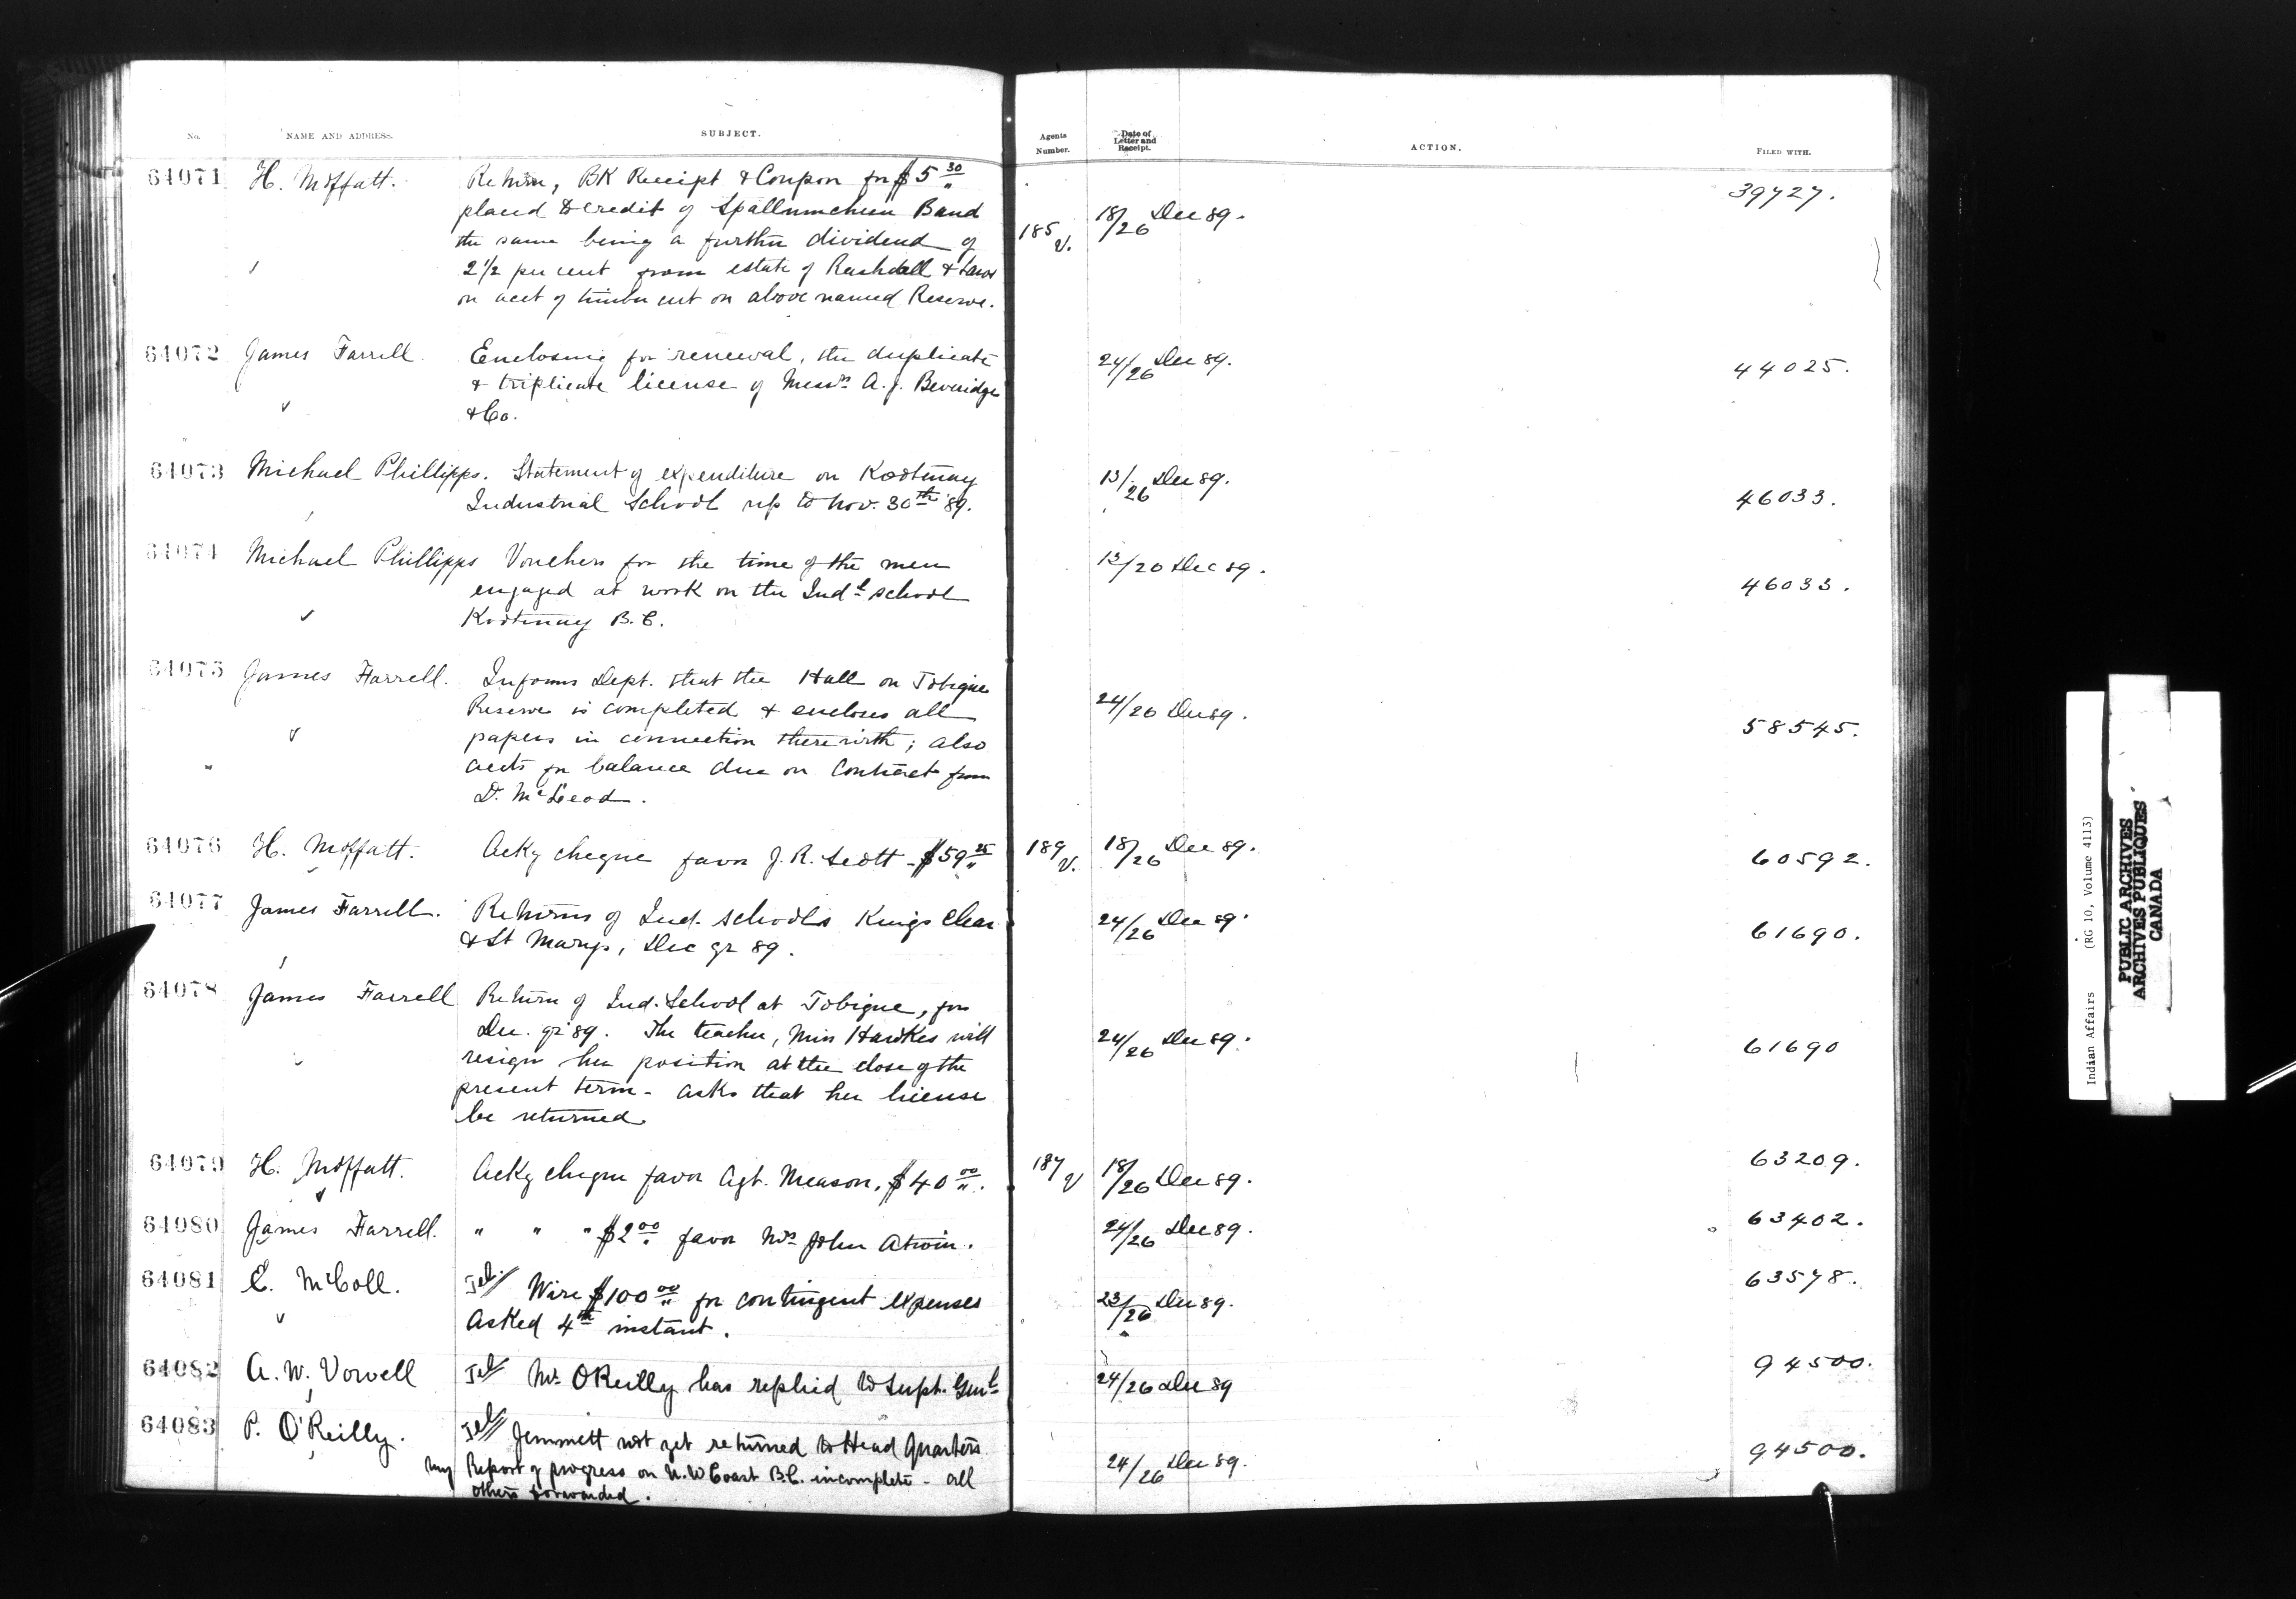 No. NAME AND ADDRESS. SUBJECT. Agents Number. Date of Letter and Receipt. ACTION. FILED WITH.
64071 H. Moffatt. Return, BK Receipt & Coupon for $5 30
placed to credit of Spallumcheen Band
the same being a further dividend of
2 1/2 per cent from estate of Rashdall &
on acct of timber cut on above named Reserve.
185 V. 18/26 Dec 89. 39727.
64072 James Farrell. Enclosing for renewal, the duplicate
& triplicate license of Messrs A. J. Beveridge
& Co.
24/26 Dec 89. 44025.
64073 Michael Phillipps. Statement of expenditure on Kootenay
Industrial School up to Nov. 30th '89.
13/26 Dec 89. 46033.
64074 Michael Phillipps Vouchers for the time of the men
engaged at work on the Indl school
Kootenay B.C.
13/26 Dec 89. 46033.
64075 James Farrell. Informs Dept. that the Hall on Tobique
Reserve is completed & encloses all
papers in connection therewith; also
accts for balance due on Contract from
D. McLeod.
24/26 Dec 89. 58545.
64076 H. Moffatt. Ackg cheque favor J. R. Scott - $59 25 189 V. 18/26 Dec 89. 60592.
64077 James Farrell. Returns of Ind. schools Kingsclear
& St Marys, Dec qr 89.
24/26 Dec 89. 61690.
64078 James Farrell Return of Ind. School at Tobique, for
Dec. qr '89. The teacher, Miss Hawkes will
resign her position at the close of the
present term - asks that her license
be returned.
24/26 Dec 89. 61690
64079 H. Moffatt. Ackg cheque favor Agt. Meason, $40 00. 187 V 18/26 Dec 89. 63209.
64080 James Farrell. " " " $2 00 favor Mrs John Atwin. 24/26 Dec 89. 63402.
64081 E. McColl. Tel// Wire $100 00 for contingent expenses
Asked 4th instant.
23/26 Dec 89. 63578.
64082 A. W. Vowell Tel// Mr. OReilly has replied to Supt. Genl 24/26 Dec 89 94500.
64083 P. O'Reilly. Tel// Jemmett not yet returned to Head Quarters
my Report of progress on N.W Coast B.C. incomplete - all
others forwarded.
24/26 Dec 89. 94500.
Indian Affairs (RG 10, Volume 4113)
PUBLIC ARCHIVES
ARCHIVES PUBLIQUES
CANADA